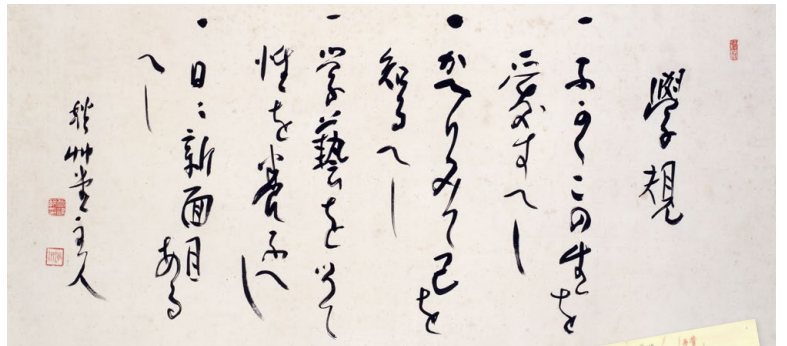 學規
一ふかくこの生を
愛すへし
一かへりみて己を
知るへし
一学藝を以て
性を養ふへし
一日々新面目ある
へし
秋艸堂主人